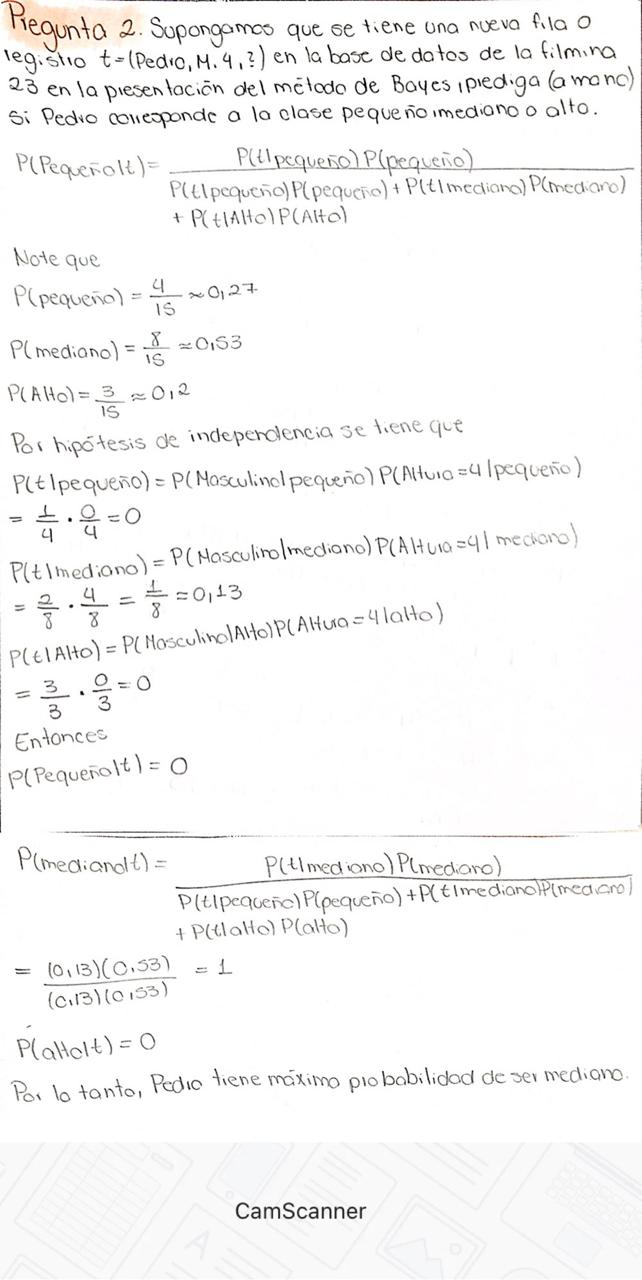 Pregunta 2. Supongamos que se tiene una nueva fila o
registro t=(Pedro, M. 4, ?) en la base de datos de la filmina
23 en la presentación del método de Bayes, prediga (a mano)
Si Pedro corresponde a la clase pequeño, mediano o alto.
P(Pequeño|t) = P(t|pequeño) P(pequeño)
P(t|pequeño)P(pequeño) + P(t|mediano) P(mediano)
+ P(t|Alto) P(Alto)
Note que
P(pequeño) = 4/15 ≈ 0,27
P(mediano) = 8/15 ≈ 0,53
P(Alto) = 3/15 ≈ 0,2
Por hipótesis de independencia se tiene que
P(t|pequeño) = P(Masculino|pequeño) P(Altura=4|pequeño)
= 1/4 · 0/4 = 0
P(t|mediano) = P(Masculino|mediano) P(Altura=4|mediano)
= 2/8 · 4/8 = 1/8 = 0,13
P(t|Alto) = P(Masculino|Alto) P(Altura=4|alto)
= 3/3 · 0/3 = 0
Entonces
P(Pequeño|t) = 0
P(mediano|t) = P(t|mediano) P(mediano)
P(t|pequeño) P(pequeño) + P(t|mediano) P(mediano)
+ P(t|alto) P(alto)
= (0,13)(0,53) / (0,13)(0,53) = 1
P(alto|t) = 0
Por lo tanto, Pedro tiene máximo probabilidad de ser mediano.
CamScanner